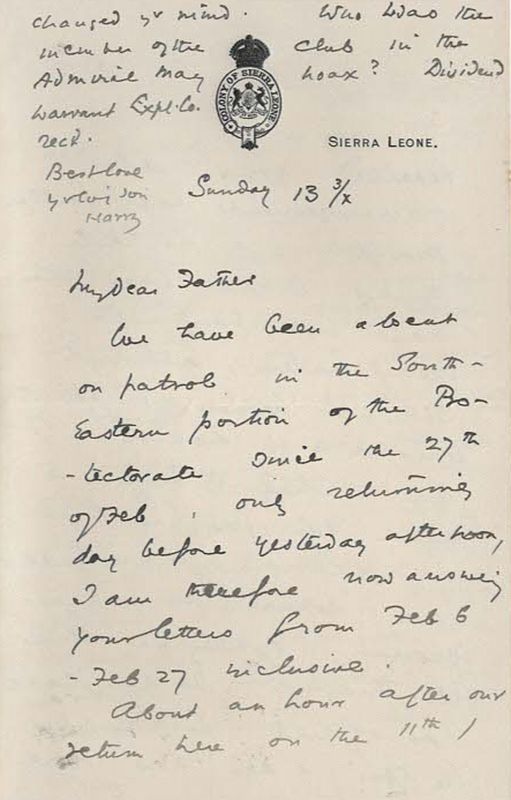 changed yr mind. Who was the
member of the club in the
Admiral May hoax? Dividend
warrant Expl. Co.
recd.
Best love
yr loving son
Harry
COLONY OF SIERRA LEONE
SIERRA LEONE.
Sunday 13 3/X
My Dear Father
We have been absent
on patrol in the South-
Eastern portion of the Pro-
-tectorate since the 27th
of Feb, only returning
day before yesterday afternoon,
I am therefore now answering
your letters from Feb 6
- Feb 27 inclusive.
About an hour after our
return here on the 11th I